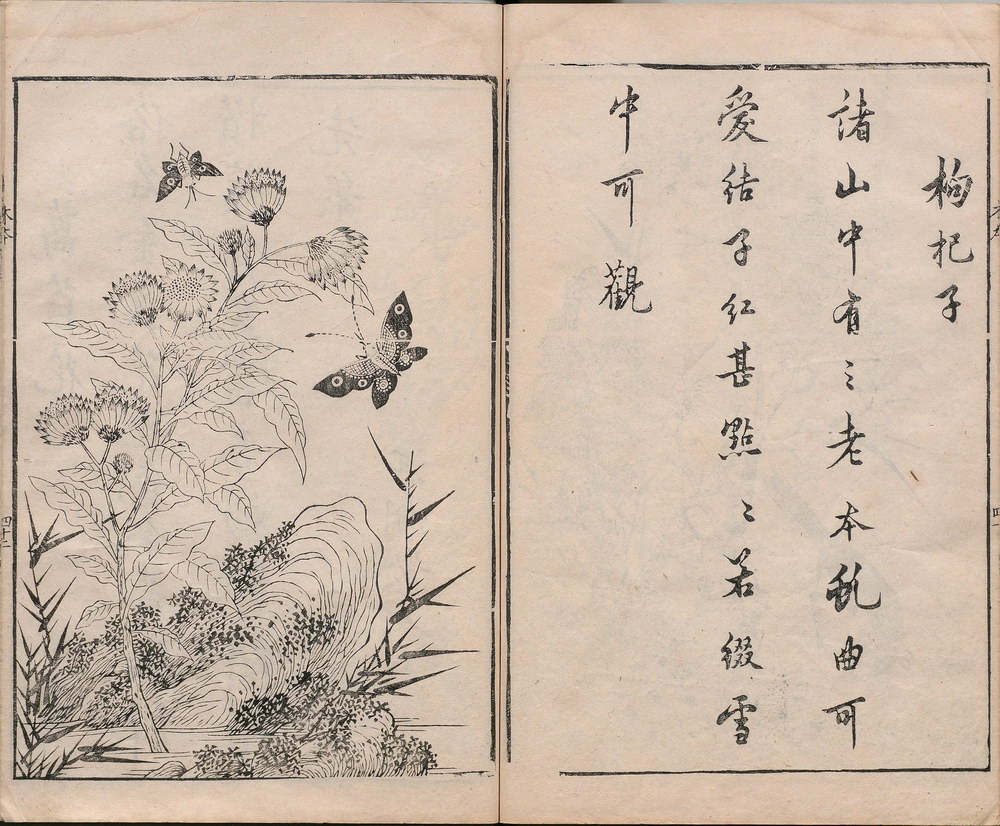 枸杞子
諸山中有之老本虬曲可
愛結子紅甚點〻若綴雪
中可觀
四十二